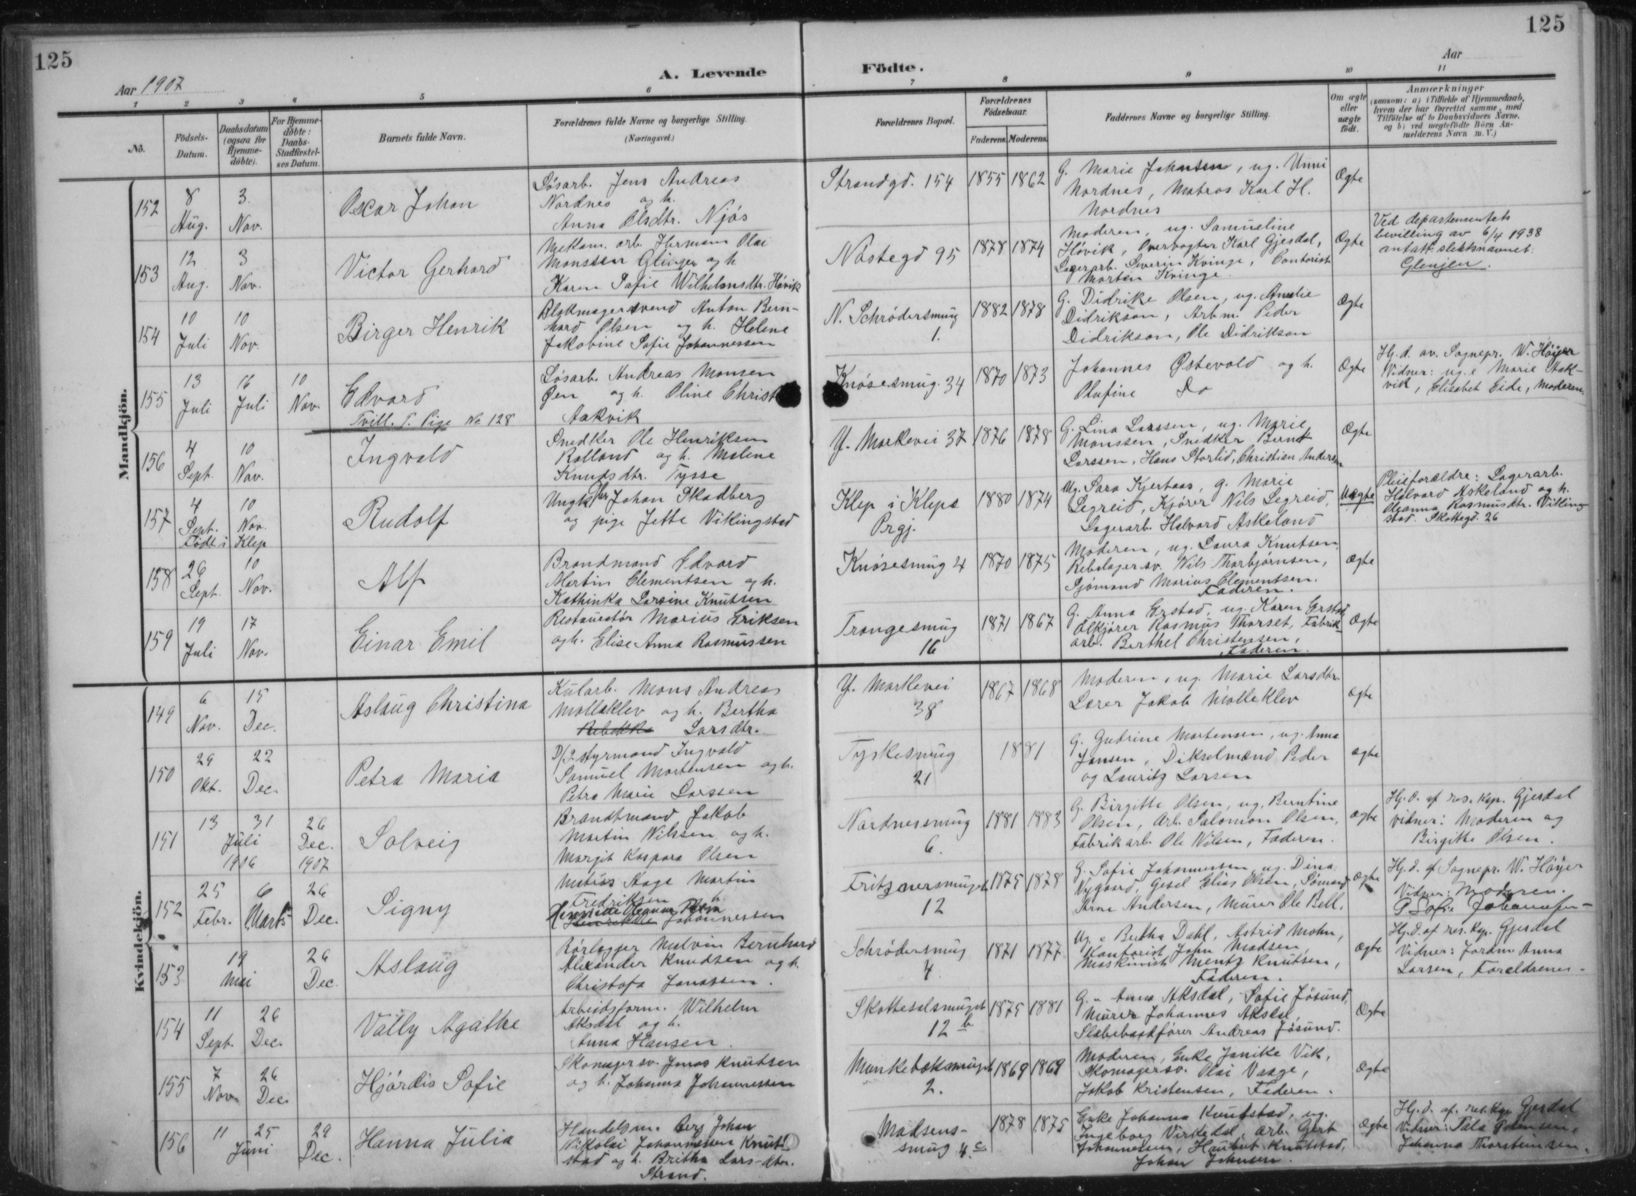 125
125
Aar 1907
A. Levende
Fødte.
Aar
1 2 3 4 5 6 7 8 9 10 11
No.
Fødsels-
Datum.
Daabsdatum
(ogsaa for
Hjemme-
døbte).
For Hjemme-
døbte:
Daabs-
Stadfæstel-
ses Datum.
Barnets fulde Navn.
Forældrenes fulde Navne og borgerlige Stilling.
(Næringsvei.)
Forældrenes Bopæl.
Forældrenes
Fødselsaar.
Faderens. Moderens.
Faddernes Navne og borgerlige Stilling.
Om ægte
eller
uægte
født.
Anmerkninger
(saasom: a) i Tilfælde af Hjemmedaab,
hvem der har forrettet samme, med
Tilføielse af to Daabsvidners Navne,
og b) ved uegtefødte Børn An-
melderens Navn m. V.)
Mandkjøn.
152
8
Aug.
3
Nov.
Oscar Johan
Løsarb. Jens Andreas
Nordnes og h.
Anna Olsdtr. Njøs
Strandgd. 154
1855 1862
G. Marie Johansen, ug. Unni
Nordnes, Matros Karl H.
Nordnes
Ægte
153
12
Aug.
3
Nov.
Victor Gerhard
Mekan. arb. Herman Olai
Monssen Glinjen og h
Karen Sofie Wilhelmsdtr. Høvik
Nøstegd 95
1878 1874
Moderen, ug. Samueline
Høvik, Overvogter Karl Gjesdal,
Lagerarb. Severin Kvinge, Contorist
Morten Kvinge.
Ægte
Ved departementets
bevilling av 6/4 1938
antatt slektsnavnet
Glenjen.
154
10
Juli
10
Nov.
Birger Henrik
Blokmagersvend Anton Bern-
hard Olsen og h. Helene
Jakobine Sofie Johannessen
N. Schrødersmug
1.
1882 1878
G. Didrike Olsen, ug. Amalie
Didriksen, Arbm. Peder
Didriksen, Ole Didriksen
Ægte
155
13
Juli
16
Juli
10
Nov.
Edvard
Tvill. T. Pige No 128
Løsarb. Andreas Monsen
Øen og h. Oline Christ
Aakvik
Knøsesmug. 34
1870 1873
Johannes Østevold og h.
Olufine do
Ægte
Hj. d. av. Sognepr. W. Høyer
Vidner: ug. Marie Aak-
vik, Elisabet Eide, Moderen
156
4
Sept.
10
Nov.
Ingvald
Snedker Ole Henriksen
Rolland og h. Malene
Knudsdtr. Tysse
Y. Markevei 37
1876 1878
G. Lina Larssen, ug. Marie
Monssen, Snedker Bernt
Larssen, Hans Storlid, Christian Andersen
Ægte
157
4
Sept.
10
Nov.
Født i Klep
Rudolf
Ungkar Johan Skadberg
og pige Jette Vikingstad
Klep i Kleps
Prgj.
1880 1874
Ug. Sara Kjertaas, g. Marie
Legreid, Kjører Nils Legreid
Lagerarb. Halvard Askeland
Uægte
Pleieforældre: Lagerarb.
Halvard Askeland og h.
Oleanna Rasmusdtr. Viking-
stad. Skottegd. 26
158
26
Sept.
10
Nov.
Alf
Brandmand Edvard
Martin Clementsen og h.
Kathinka Larsine Knutsen
Knøsesmug 4
1870 1875
Moderen, ug. Laura Knutsen,
Rebslagersv. Nils Thorbjørnsen,
Sjømand Marius Clementsen.
Faderen.
Ægte
159
19
Juli
17
Nov.
Einar Emil
Restauratør Marius Eriksen
og h. Elise Anna Rasmussen
Trangesmug
16
1871 1867
G. Anna Erstad, ug. Karen Erstad
Ølkjører Rasmus Thorset, Fabrik-
arb. Berthel Christensen,
Faderen.
Ægte
Kvindekjøn.
149
6
Nov.
15
Dec.
Aslaug Christina
Kularb. Mons Andreas
Mølleklev og h. Bertha
Rebekka Larsdtr.
Y. Markevei
38
1867 1868
Moderen, ug. Marie Larsdtr.
Lærer Jakob Mølleklev
ægte
150
29
Okt.
22
Dec.
Petra Maria
D/S styrmand Ingvald
Samuel Mortensen og h.
Petra Marie Larssen
Tyskesmug
21
1881
G. Gutrine Mortensen, ug. Anna
Jansen, Dikselmænd Peder
og Lauritz Larsen
ægte
151
13 31
Juli
1906
26
Dec.
1907
Solveig
Brandtmand Jakob
Martin Nilssen og h.
Margit Kaspara Olsen
Nordnessmug
6.
1881 1883
G. Birgitte Olsen, ug. Berntine
Olsen, Arb. Salomon Olsen,
Fabrikarb. Ole Nilsen, Faderen.
ægte
Hj. d. af res. kap. Gjesdal
Vidner: Moderen og
Birgitte Olsen.
152
25
Febr.
6
Marts
26
Dec.
Signy
Matros Aage Martin
Fredriksen h.
Johannessen
Fritznersmuget
12
1875 1878
G. Sofie Johannessen, ug. Dina
Nygaard, Gesel Elias Olsen, Sømand
Arne Andersen, Murer Ole Bell.
ægte
Hj. d. af Sognepr. W. Høyer
Vidner: Moderen.
Sofie Johannesen
153
19
Mai
26
Dec.
Aslaug
Rørlægger Melvin Bernhard
Alexander Knudsen og h.
Christofa Jonassen.
Schrødersmug
4
1871 1877
Ug. Bertha Dahl, Astrid Mohn,
Kontorist John Madsen,
Maskinist Mentz Knutsen,
Faderen.
ægte
Hj. d. af res. kap. Gjesdal
Vidner: Jordm. Anna
Larsen, Forældrene.
154
11
Sept.
26
Dec.
Vally Agathe
Arbeidsform. Wilhelm
Aksdal og h.
Anna Hansen.
Skottesalsmuget
12 b
1875 1881
G. Anna Aksdal, Sofie Jøsund,
Murer Johannes Aksdal,
Slæbebaadfører Andreas Jøsund.
Ægte
155
7
Nov.
26
Dec.
Hjørdis Sofie
Skomagersv. Jonas Knutsen
og h. Johanna Johannessen
Munkebæksmuget
2.
1869 1869
Moderen, Enke Janike Vik,
Skomagersv. Olai Vaage,
Jakob Kristensen, Faderen.
Ægte
156
11 25
Juni
29
Dec.
Hanna Julia
Handelsm. Berg Johan
Nikolai Johannessen Knut-
stad og h. Britha Larsdtr.
Strand.
Madsens-
smug 4 c
1878 1875
Enke Johanna Knutstad, ug.
Ingeborg Virkedal, Arb. Gert
Johannesen, Knutstad,
Johan Johnsen.
Ægte
Hj. d. af res. kap. Gjesdal
Vidner: Petersen,
Johanna Thorsteinsen.